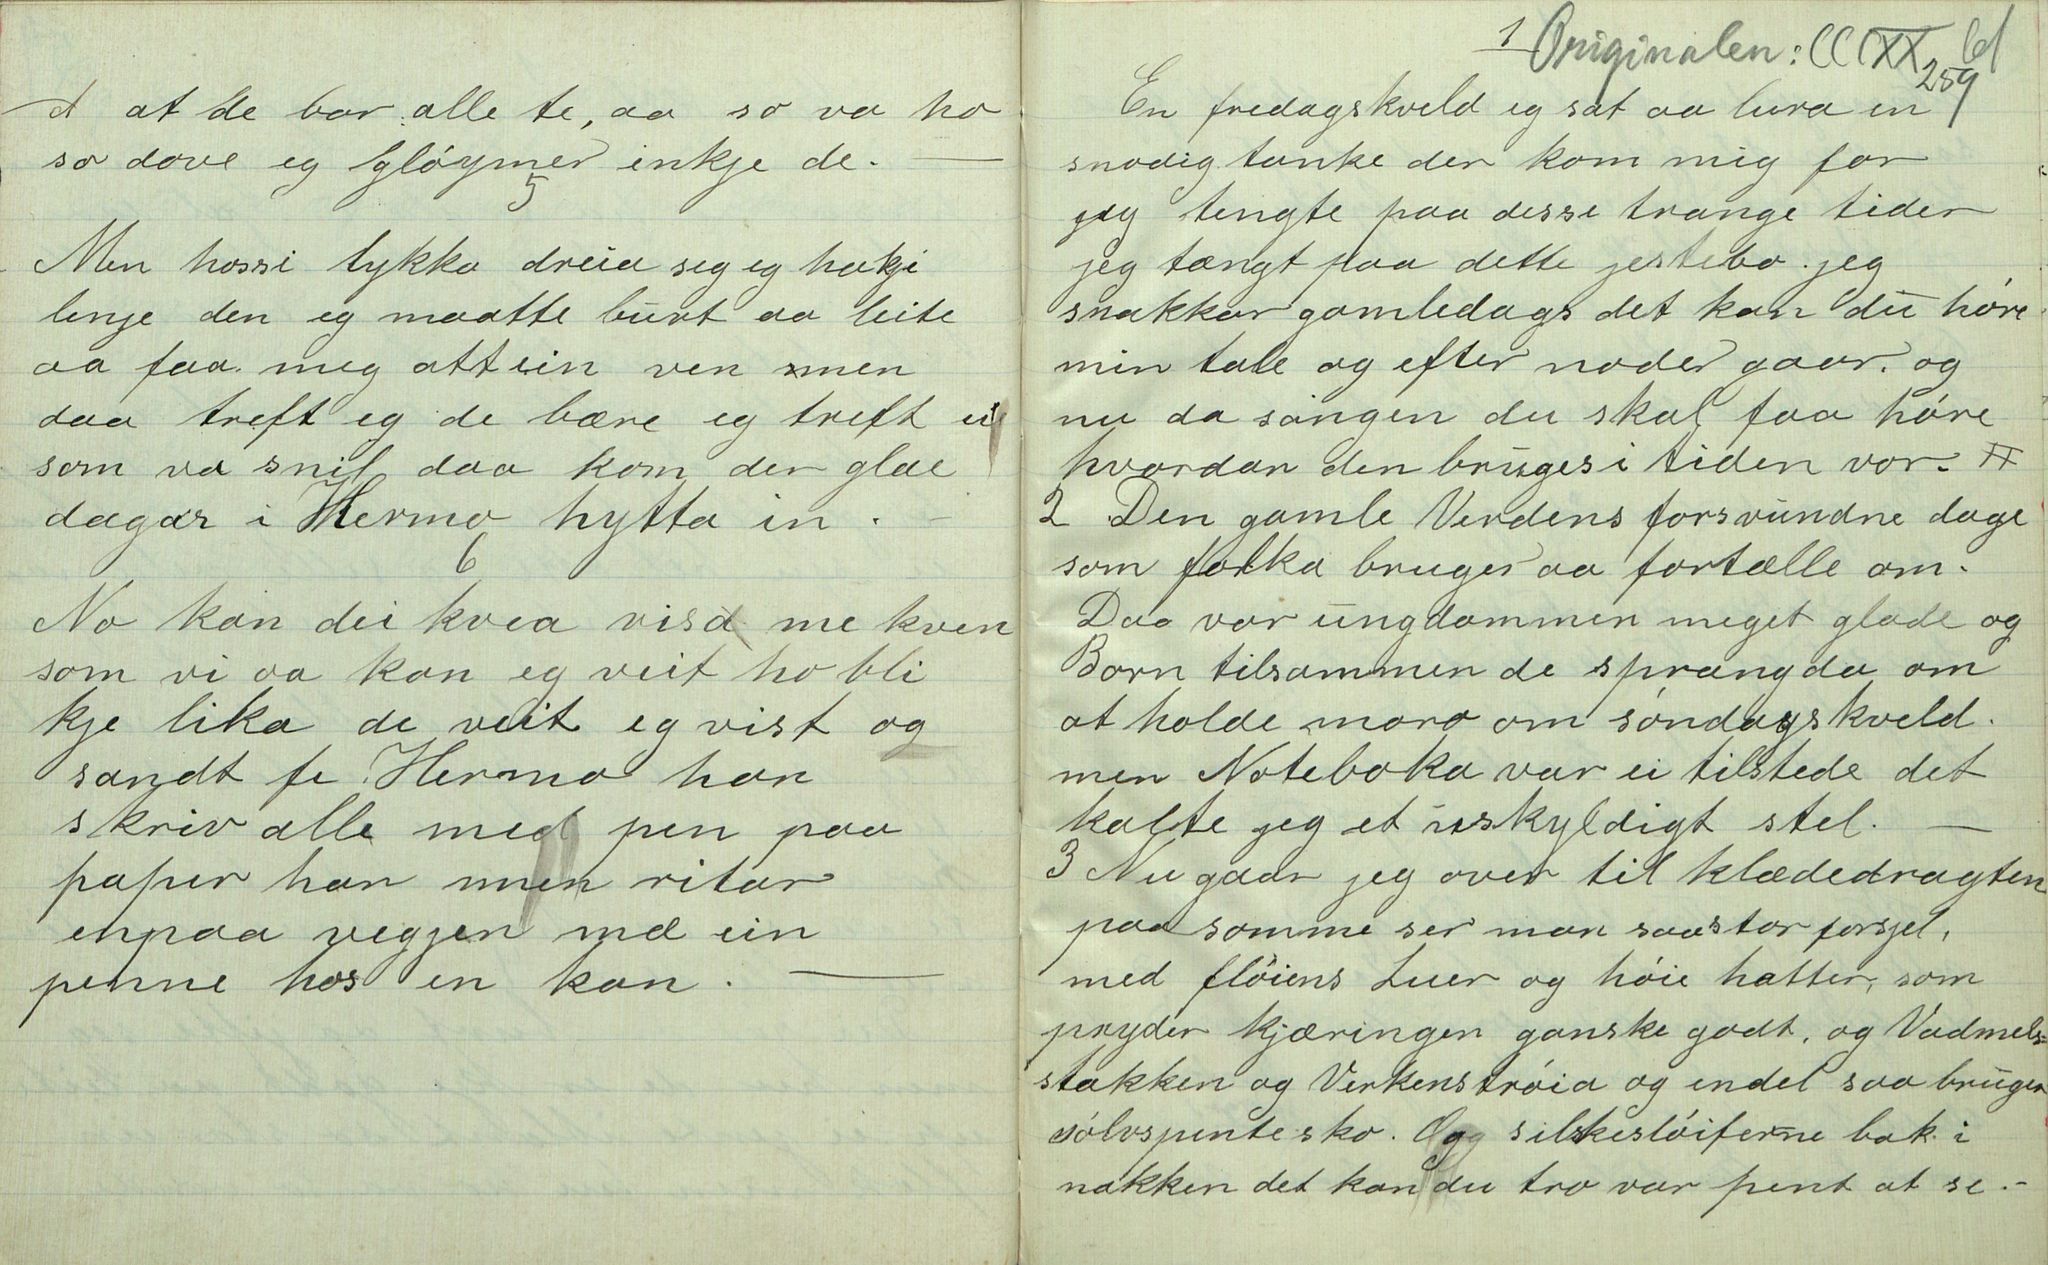 at de bar alle te, aa so va ho
so dove eg gløymer inkje de. —
5
Men hossi lykka dreia seg eg hakji
lenje den eg maatte burt aa leite
aa faa meg att ein ven men
daa treft eg de bære eg treft ei
som va snil daa kom der glae
dagar i Hermo hytta in. –
6
No kan dei kvea visa me kven
som vi aa kan eg veit ho bli
kje lika de veit eg vist og
sandt fe Hermo han
skriv alle med pen paa
paper han men ritar
enpaa veggjen md ein
penne hos en kan. —
1 Originalen: CCCXX bl
259
En fredagskveld eg sat aa lura en
snodig tanke der kom mig for
jeg tengte paa desse trange tider
jeg tængt paa dette jestebo. jeg
snakkar gamledags det kan du høre
min tale og efter noder gaar. og
nu da sangen du skal faa høre
hvordan den bruges i tiden vor.
2 Den gamle Verdens forsvundne dage
som folka bruger aa fortælle om.
Daa var ungdommen meget glade og
Børn tilsammen de sprang da om
at holde moro om søndagskveld.
men Noteboka var ei tilstede det
kalte jeg et uskyldigt stel. —
3 Nu gaar jeg over til klædedragten
paa somme ser man saa stor forsjel,
med fløiens Luer og høie hatter, som
pryder kjæringen ganske godt, og Vadmels=
stakken og Verkenstrøia og endel saa bruger
sølvspente sko. Og silkesløiferne bak i
nakken det kan du tro var pent at se. –